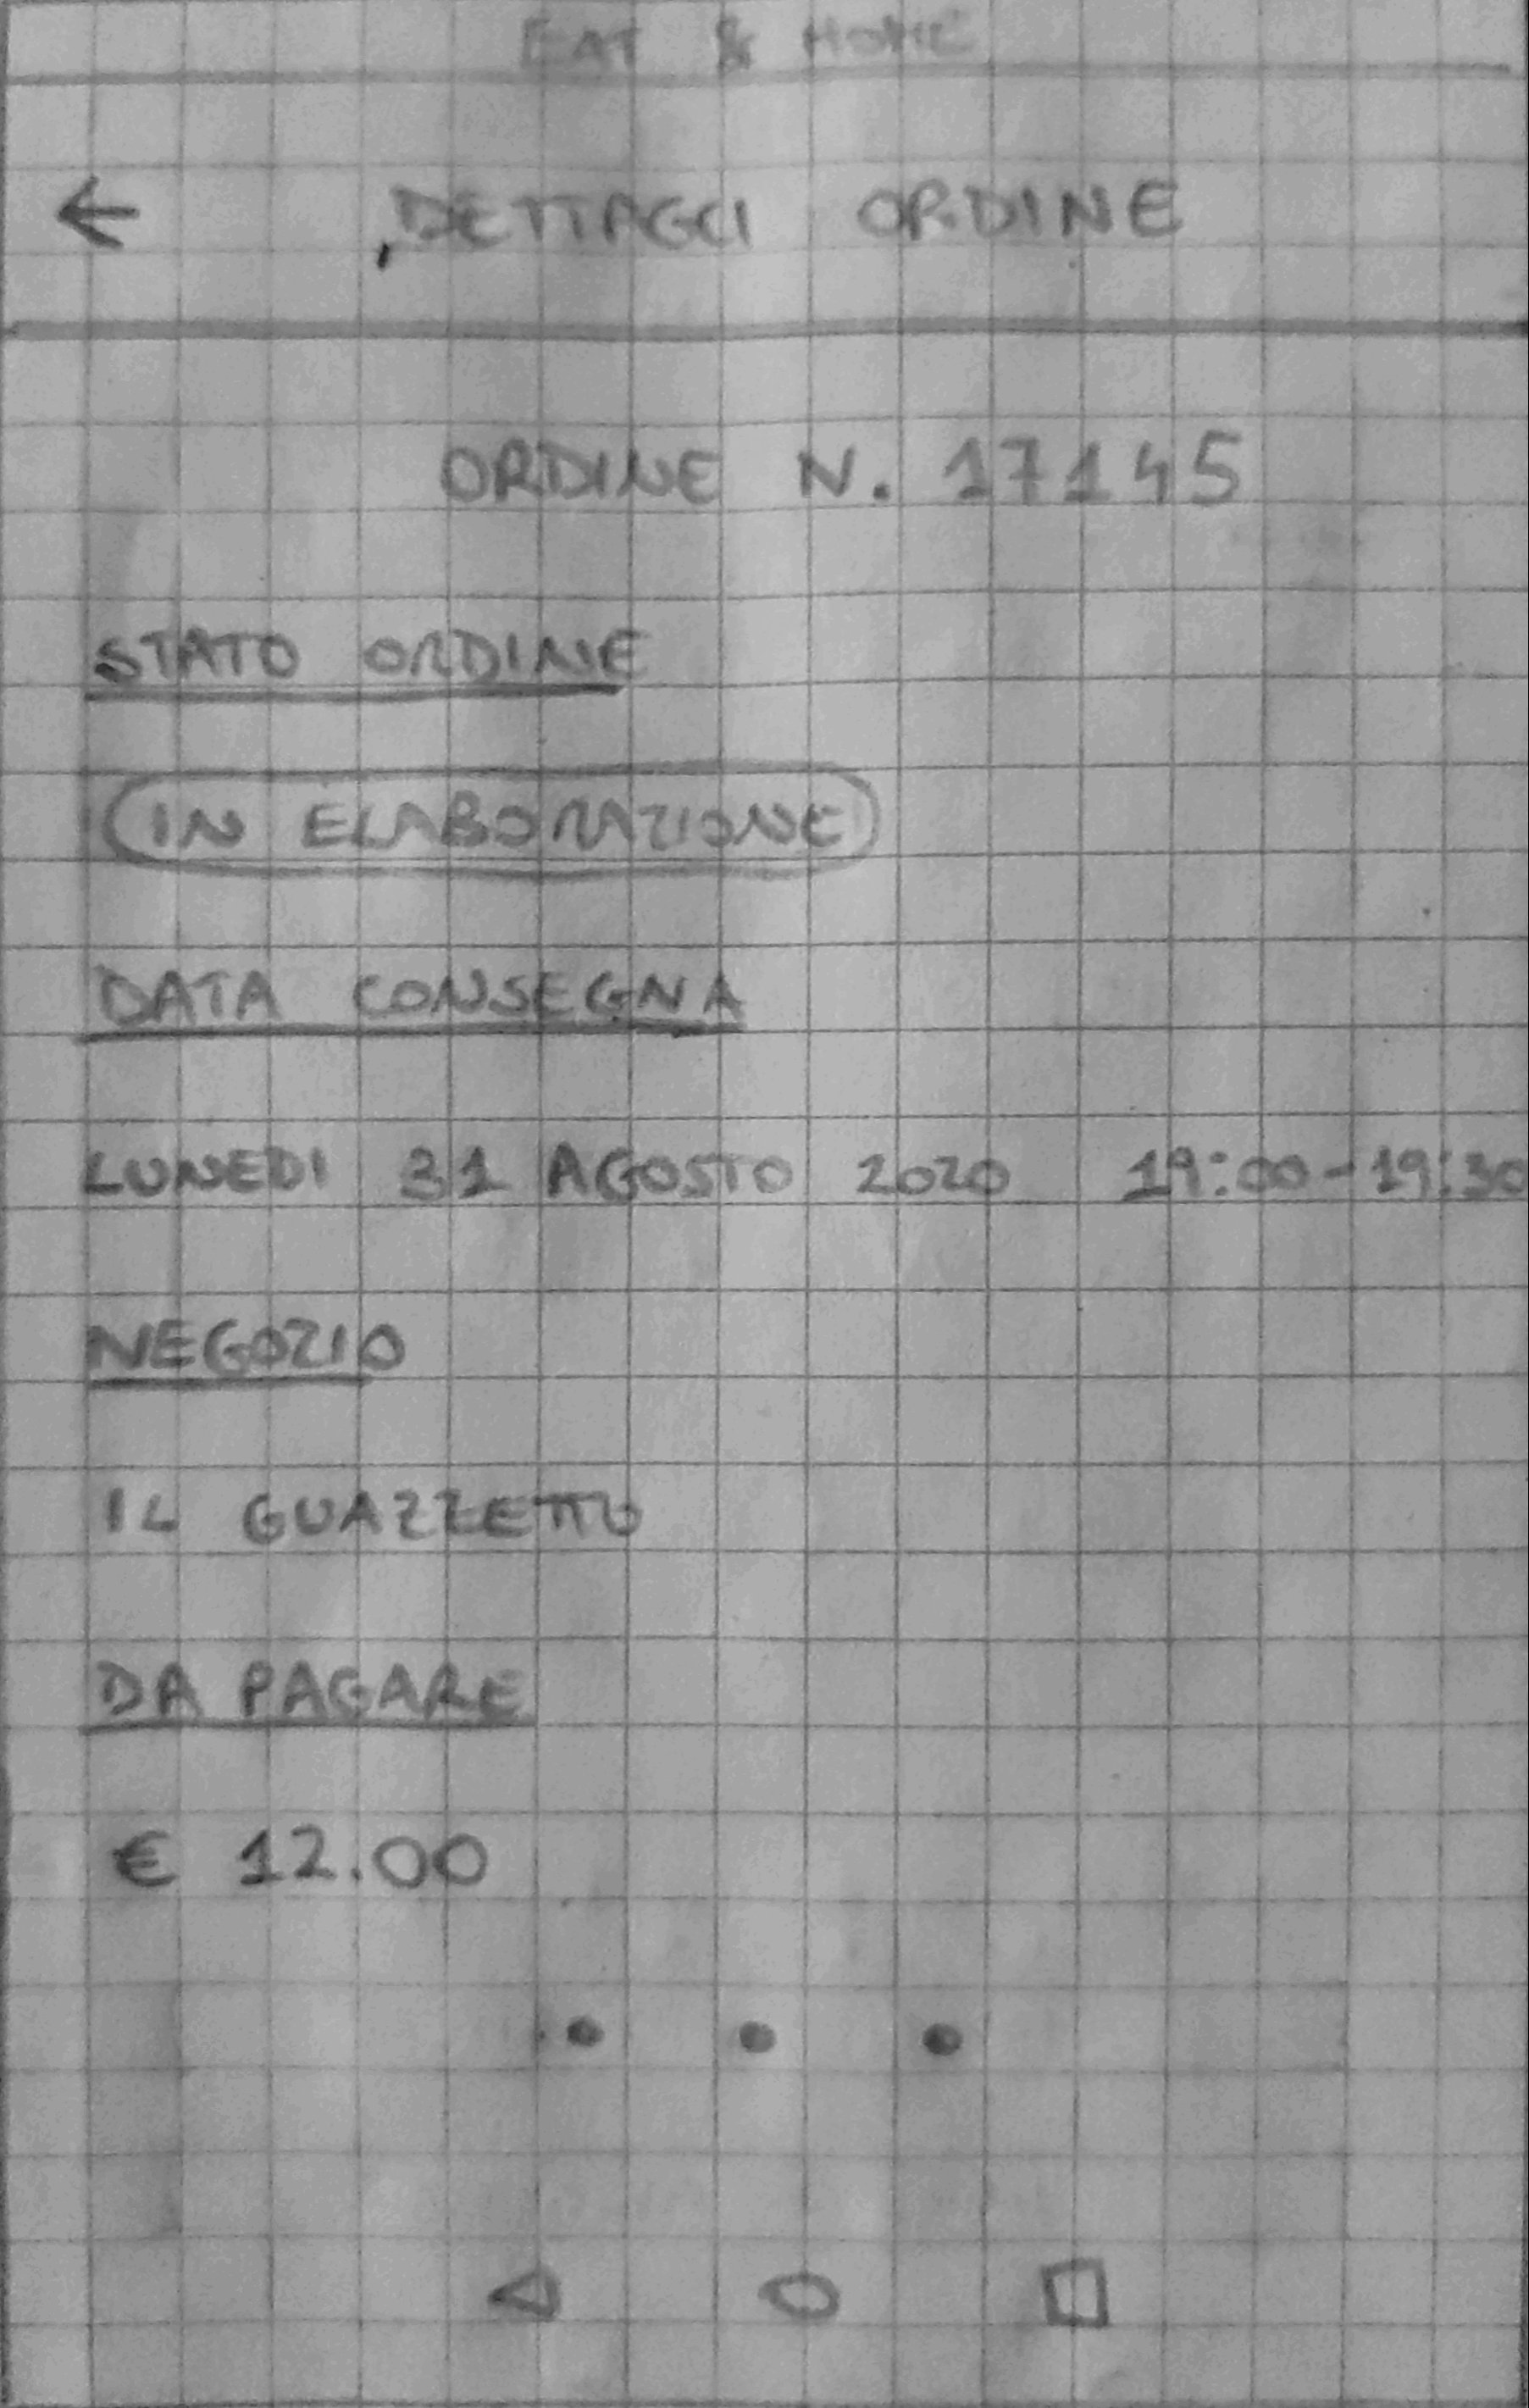 EAT & HOME
← DETTAGLI ORDINE
ORDINE N. 17145
STATO ORDINE
IN ELABORAZIONE
DATA CONSEGNA
LUNEDI 31 AGOSTO 2020 19:00-19:30
NEGOZIO
IL GUAZZETTO
DA PAGARE
€ 12.00